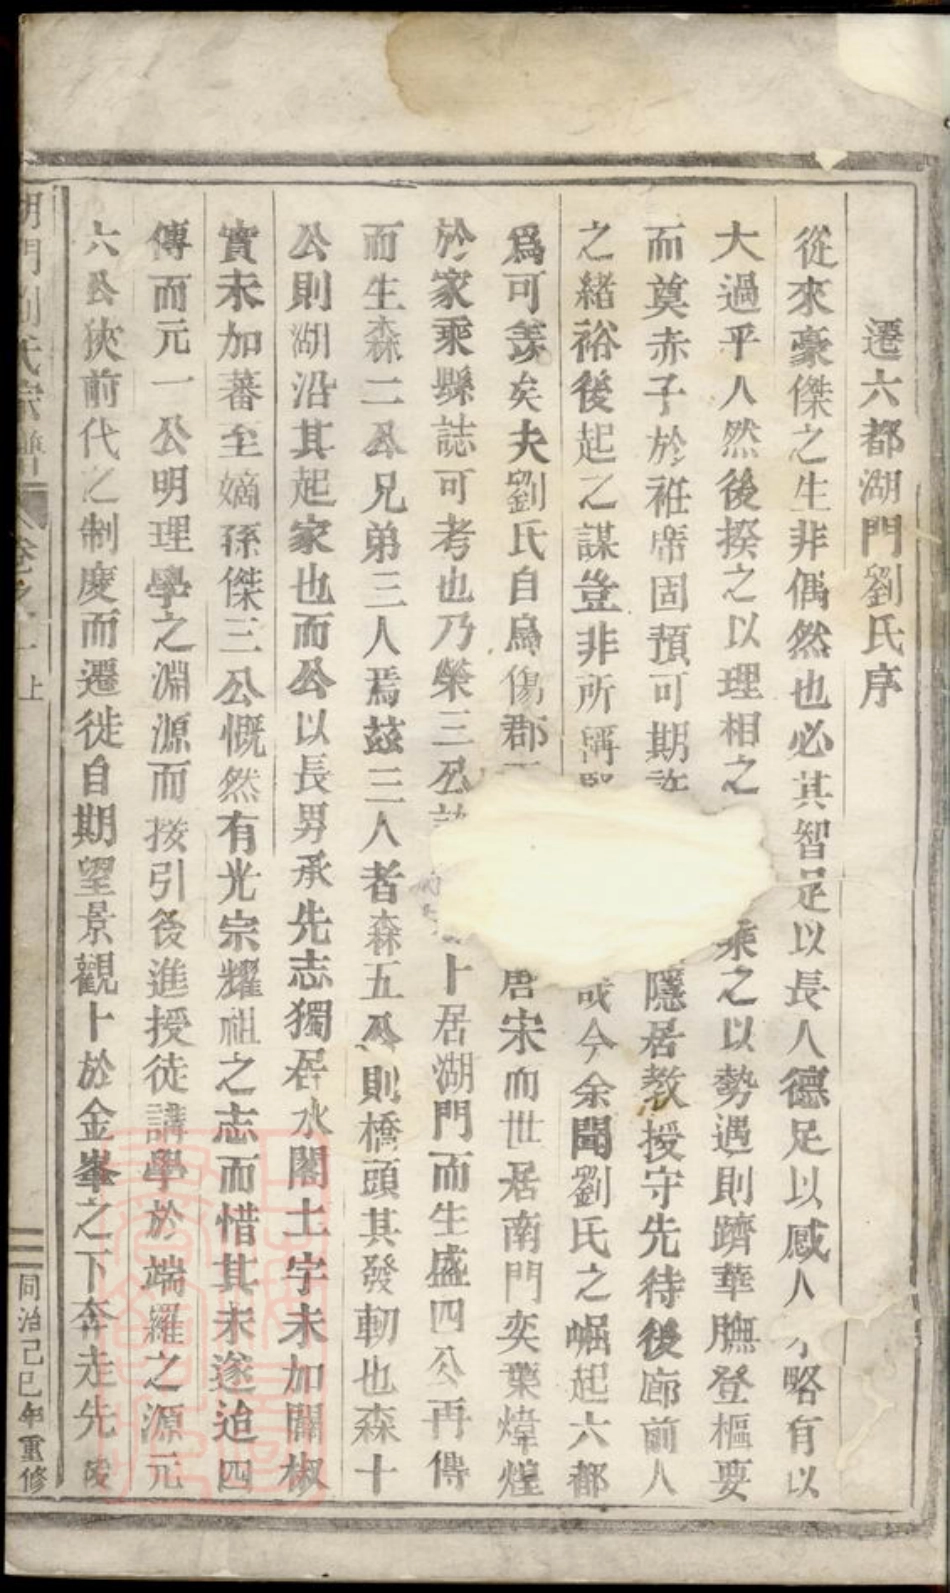 遷六都湖門劉氏序
從來豪傑之生非偶然也必其智足以長人德足以感人才略有以
大過乎人然後揆之以理相之乘之以勢遇則躋華膴登樞要
而奠赤子於袵席固預可期許隱居教授守先待後廊前人
之緒裕後起之謀豈非所稱賢哉今余聞劉氏之崛起六都
爲可羨矣夫劉氏自烏傷郡唐宋而世居南門奕葉煒煌
於家乘縣誌可考也乃榮三公卜居湖門而生盛四公再傳
而生森二公兄弟三人焉茲三人者森五公則橋頭其發軔也森十
公則湖沿其起家也而公以長男承先志獨居水閣土宇未加闢椒
實未加蕃至嫡孫傑三公慨然有光宗耀祖之志而惜其未遂迨四
傳而元一公明理學之淵源而接引後進授徒講學於端羅之源元
六公狹前代之制度而遷徙自期望景觀卜於金峯之下奔走先後
湖門劉氏宗譜
卷之一上
同治己巳年重修